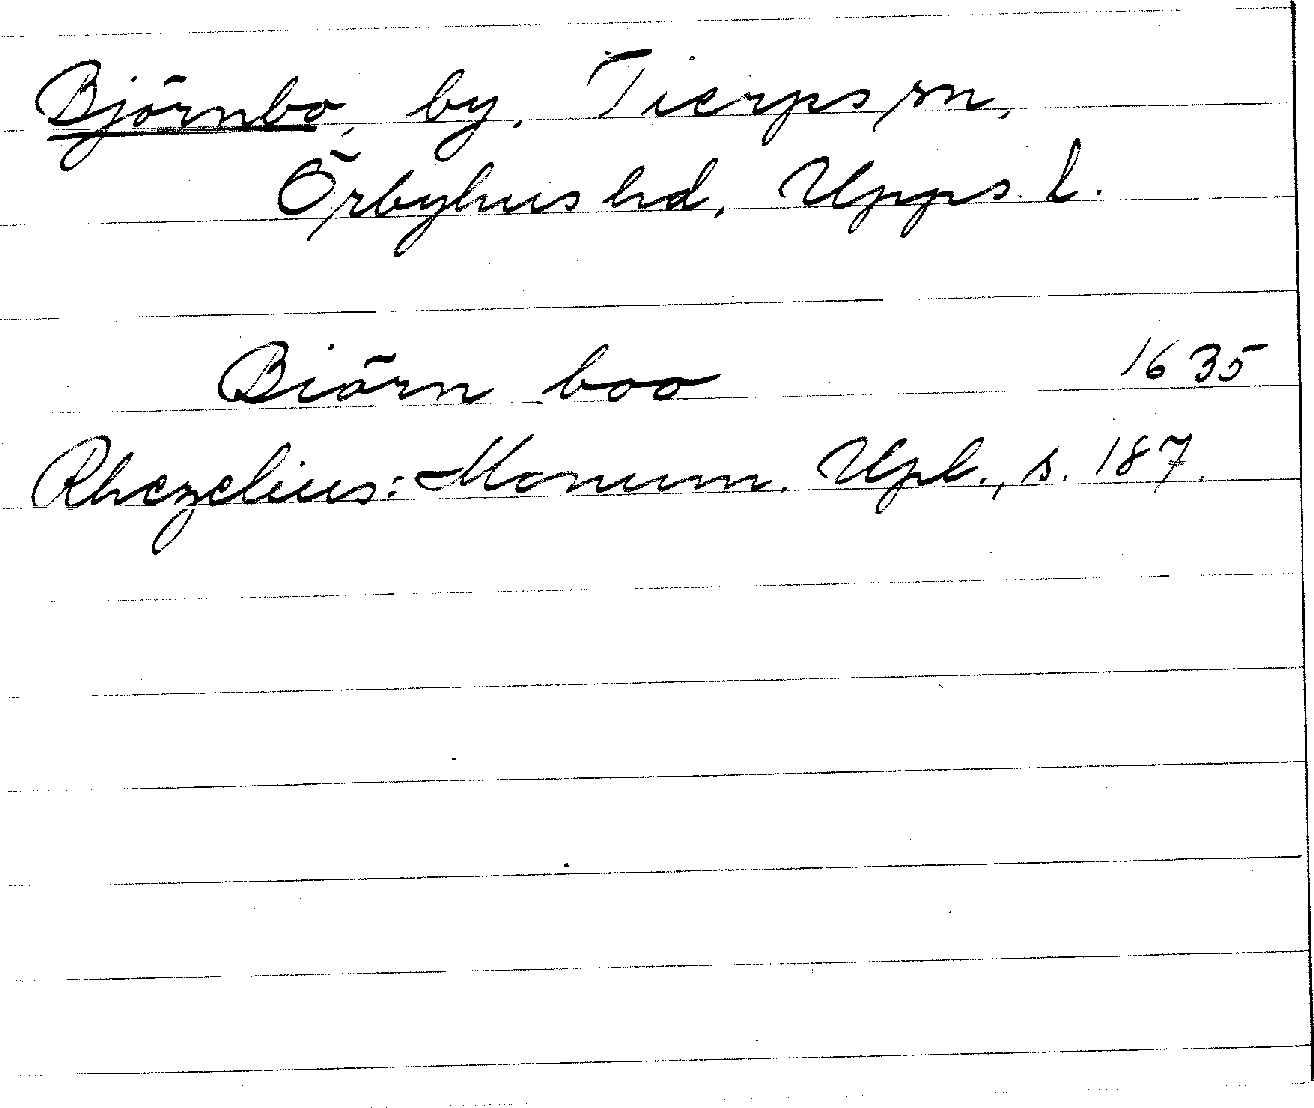 Björnbo, by, Tierps sn,
Örbyhus hd, Upps. l.
Biörn boo 1635
Rhezelius: Monum. Upl., s. 187.